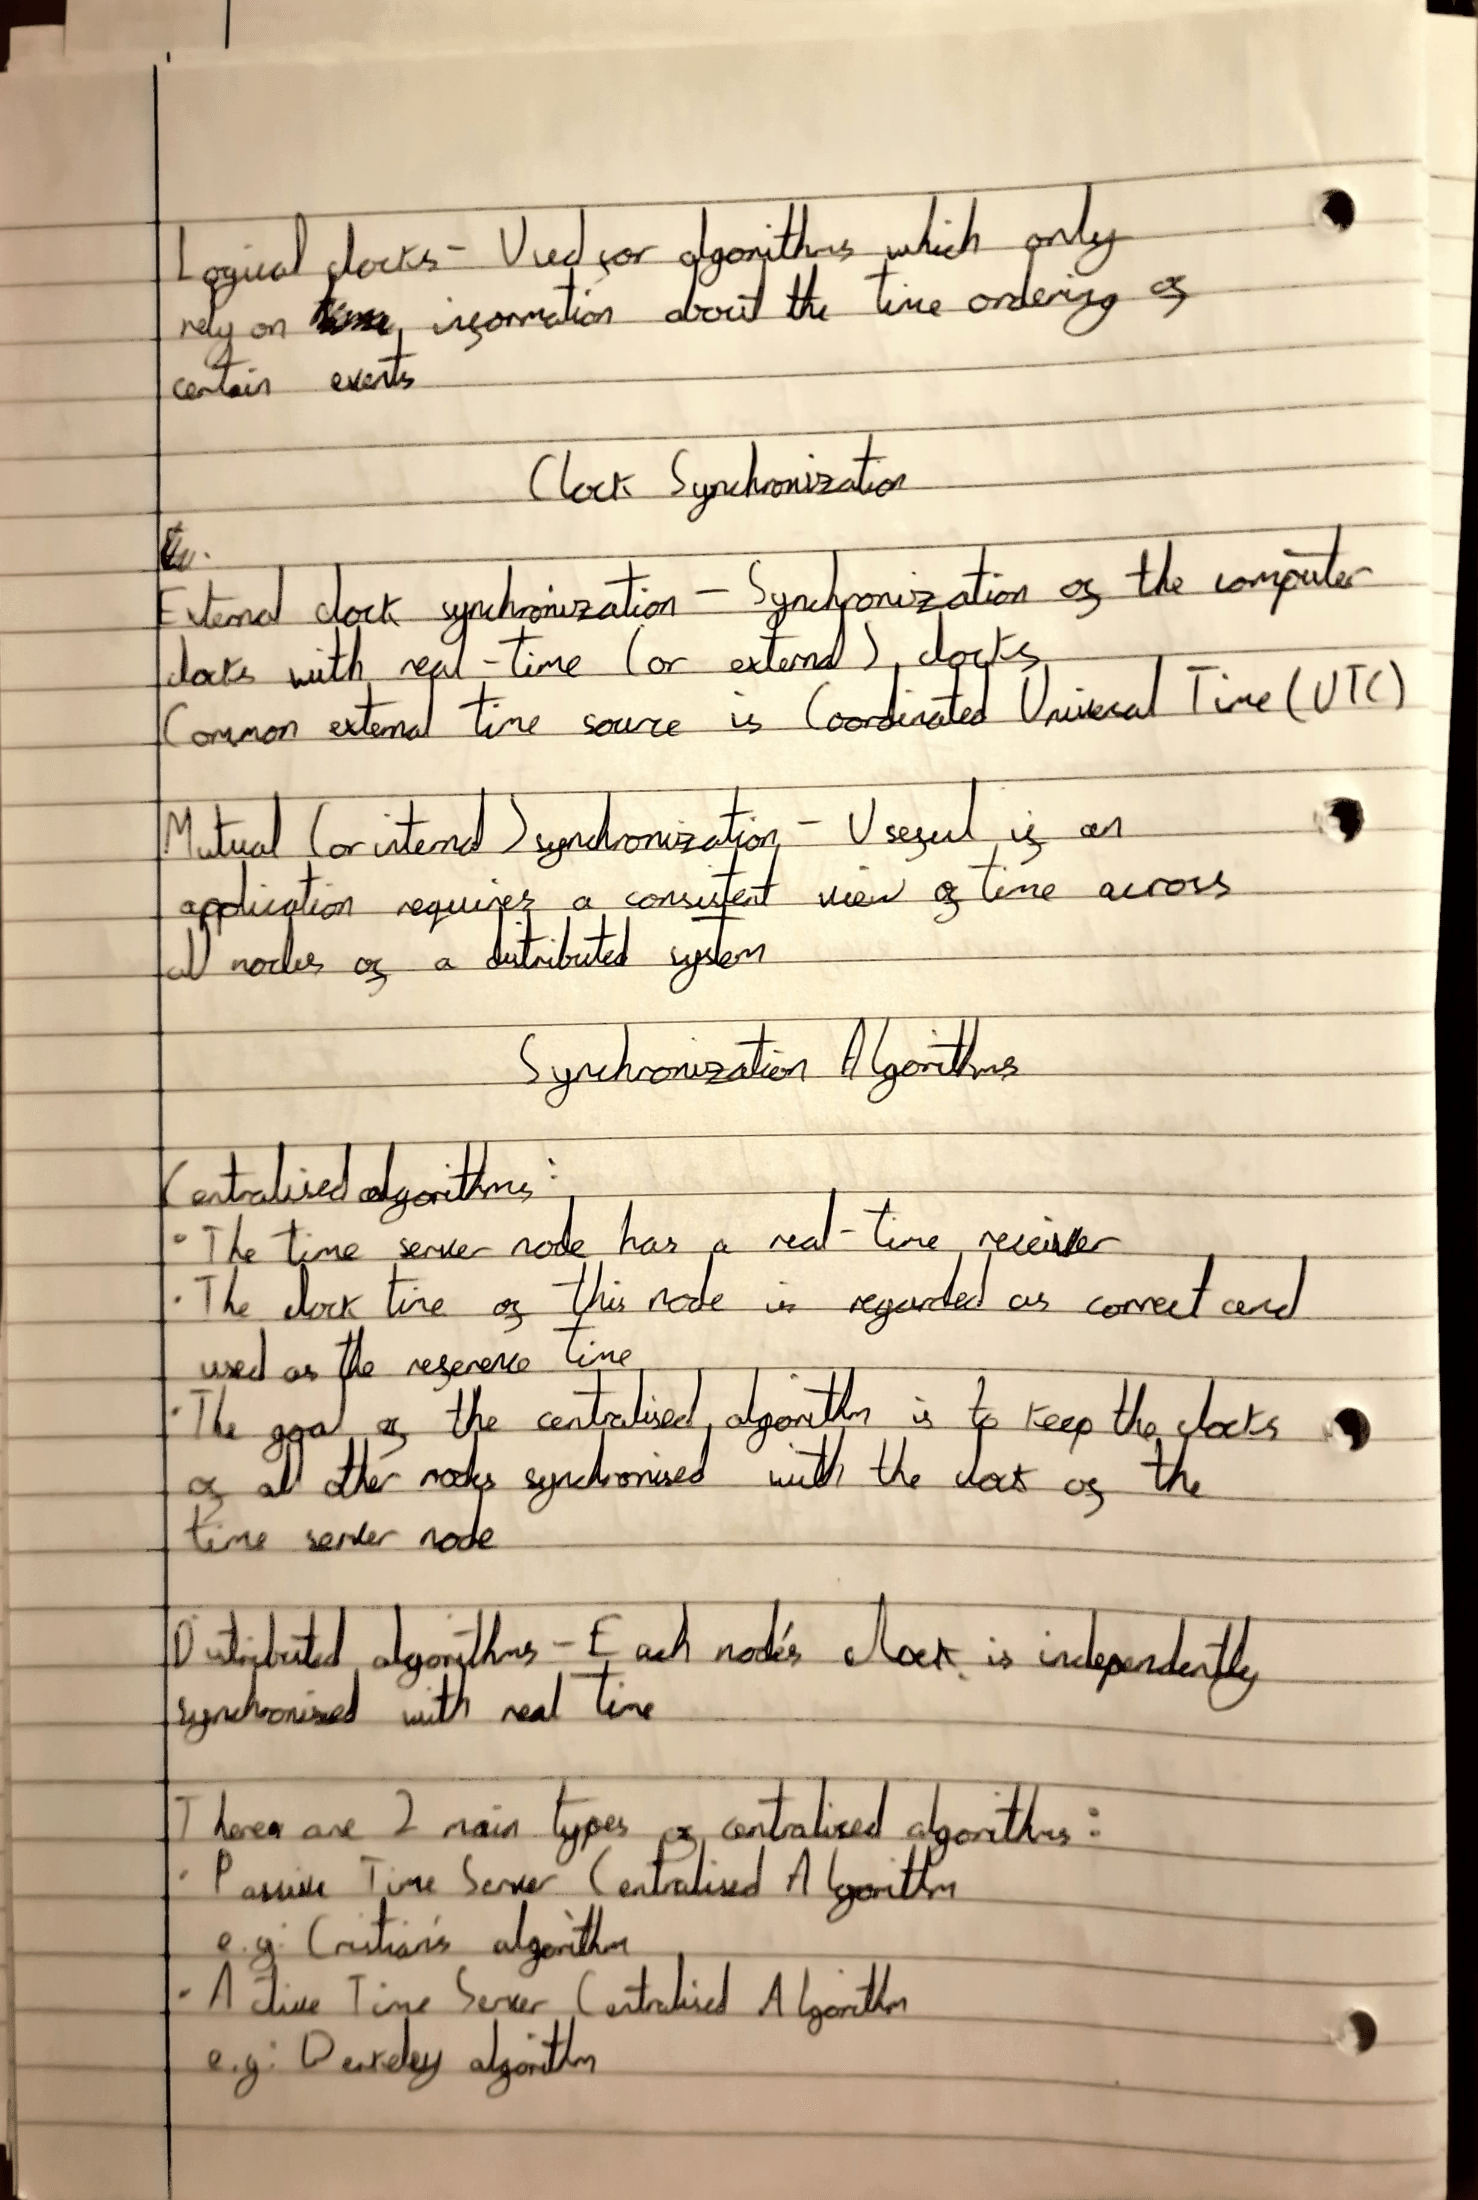 Logical clocks - Used for algorithms which only
rely on information about the time ordering of
certain events
Clock Synchronization
External clock synchronization - Synchronization of the computer
clocks with real-time (or external) clocks
Common external time source is Coordinated Universal Time (UTC)
Mutual (or internal) synchronization - Useful if an
application requires a consistent view of time across
all nodes of a distributed system
Synchronization Algorithms
Centralised algorithms:
• The time server node has a real-time receiver
• The clock time of this node is regarded as correct and
used as the reference time
• The goal of the centralised algorithm is to keep the clocks
of all other nodes synchronised with the clock of the
time server node
Distributed algorithms - Each node's clock is independently
synchronised with real time
There are 2 main types of centralised algorithms:
• Passive Time Server Centralised Algorithm
e.g: Cristian's algorithm
• Active Time Server Centralised Algorithm
e.g: Berkeley algorithm